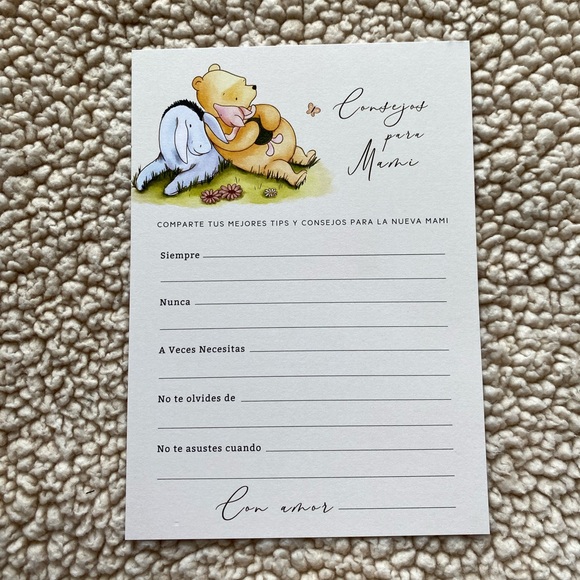 Consejos
para
Mami
COMPARTE TUS MEJORES TIPS Y CONSEJOS PARA LA NUEVA MAMI
Siempre
Nunca
A Veces Necesitas
No te olvides de
No te asustes cuando
Con amor